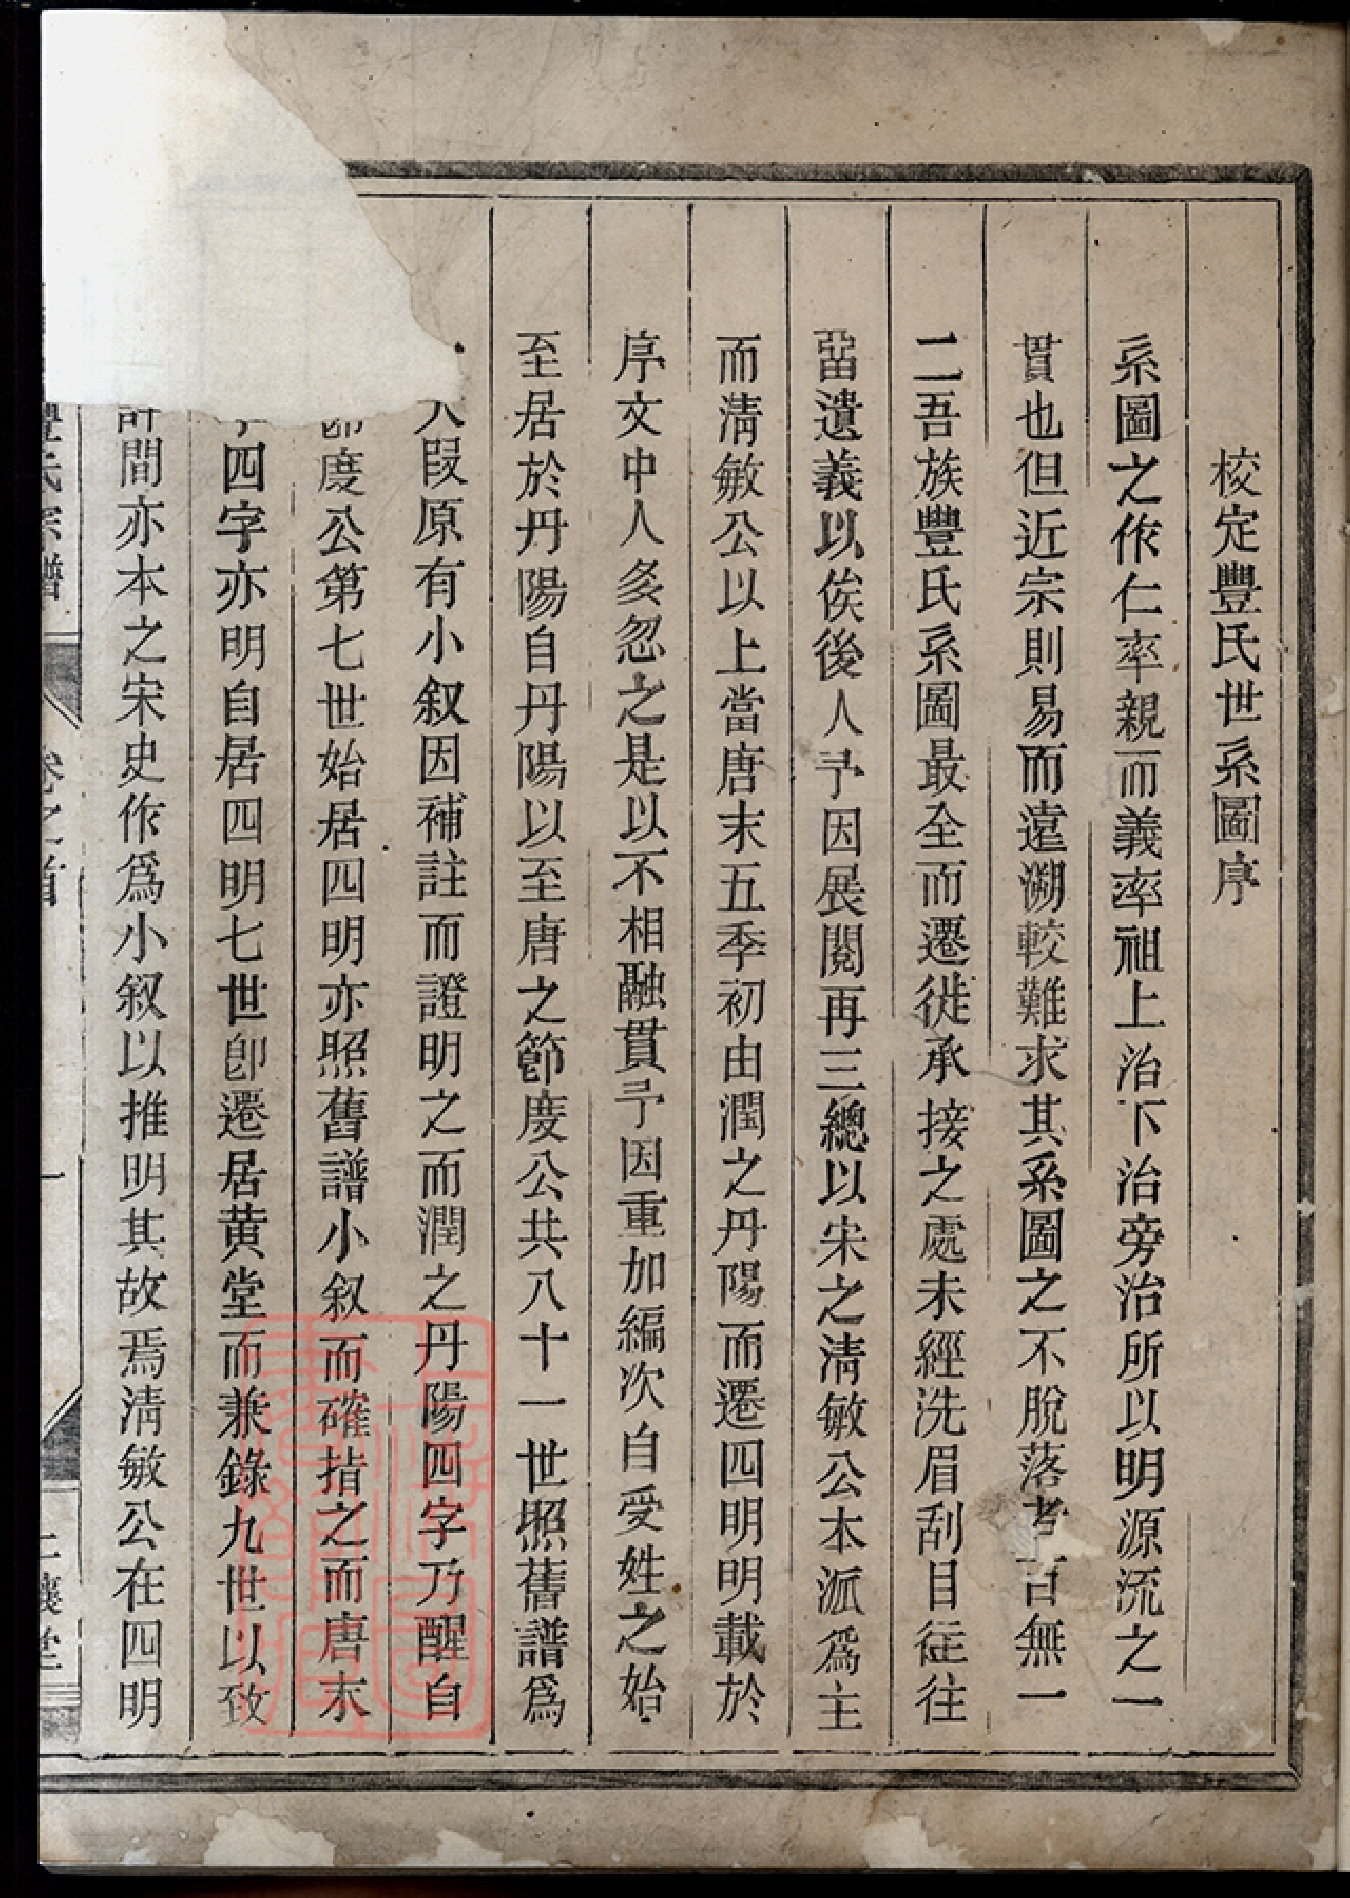 校定豐氏世系圖序
系圖之作仁率親而義率祖上治下治旁治所以明源流之一
貫也但近宗則易而遠溯較難求其系圖之不脫落者百無一
二吾族豐氏系圖最全而遷徙承接之處未經洗眉刮目往往
留遺義以俟後人予因展閱再三總以宋之清敏公本派爲主
而清敏公以上當唐末五季初由潤之丹陽而遷四明明載於
序文中人多忽之是以不相融貫予因重加編次自受姓之始
至居於丹陽自丹陽以至唐之節度公共八十一世照舊譜爲
八段原有小叙因補註而證明之而潤之丹陽四字乃醒自
節度公第七世始居四明亦照舊譜小叙而確指之而唐末
四字亦明自居四明七世卽遷居黄堂而兼錄九世以致
許間亦本之宋史作爲小叙以推明其故焉清敏公在四明
豐氏宗譜 卷之首 一